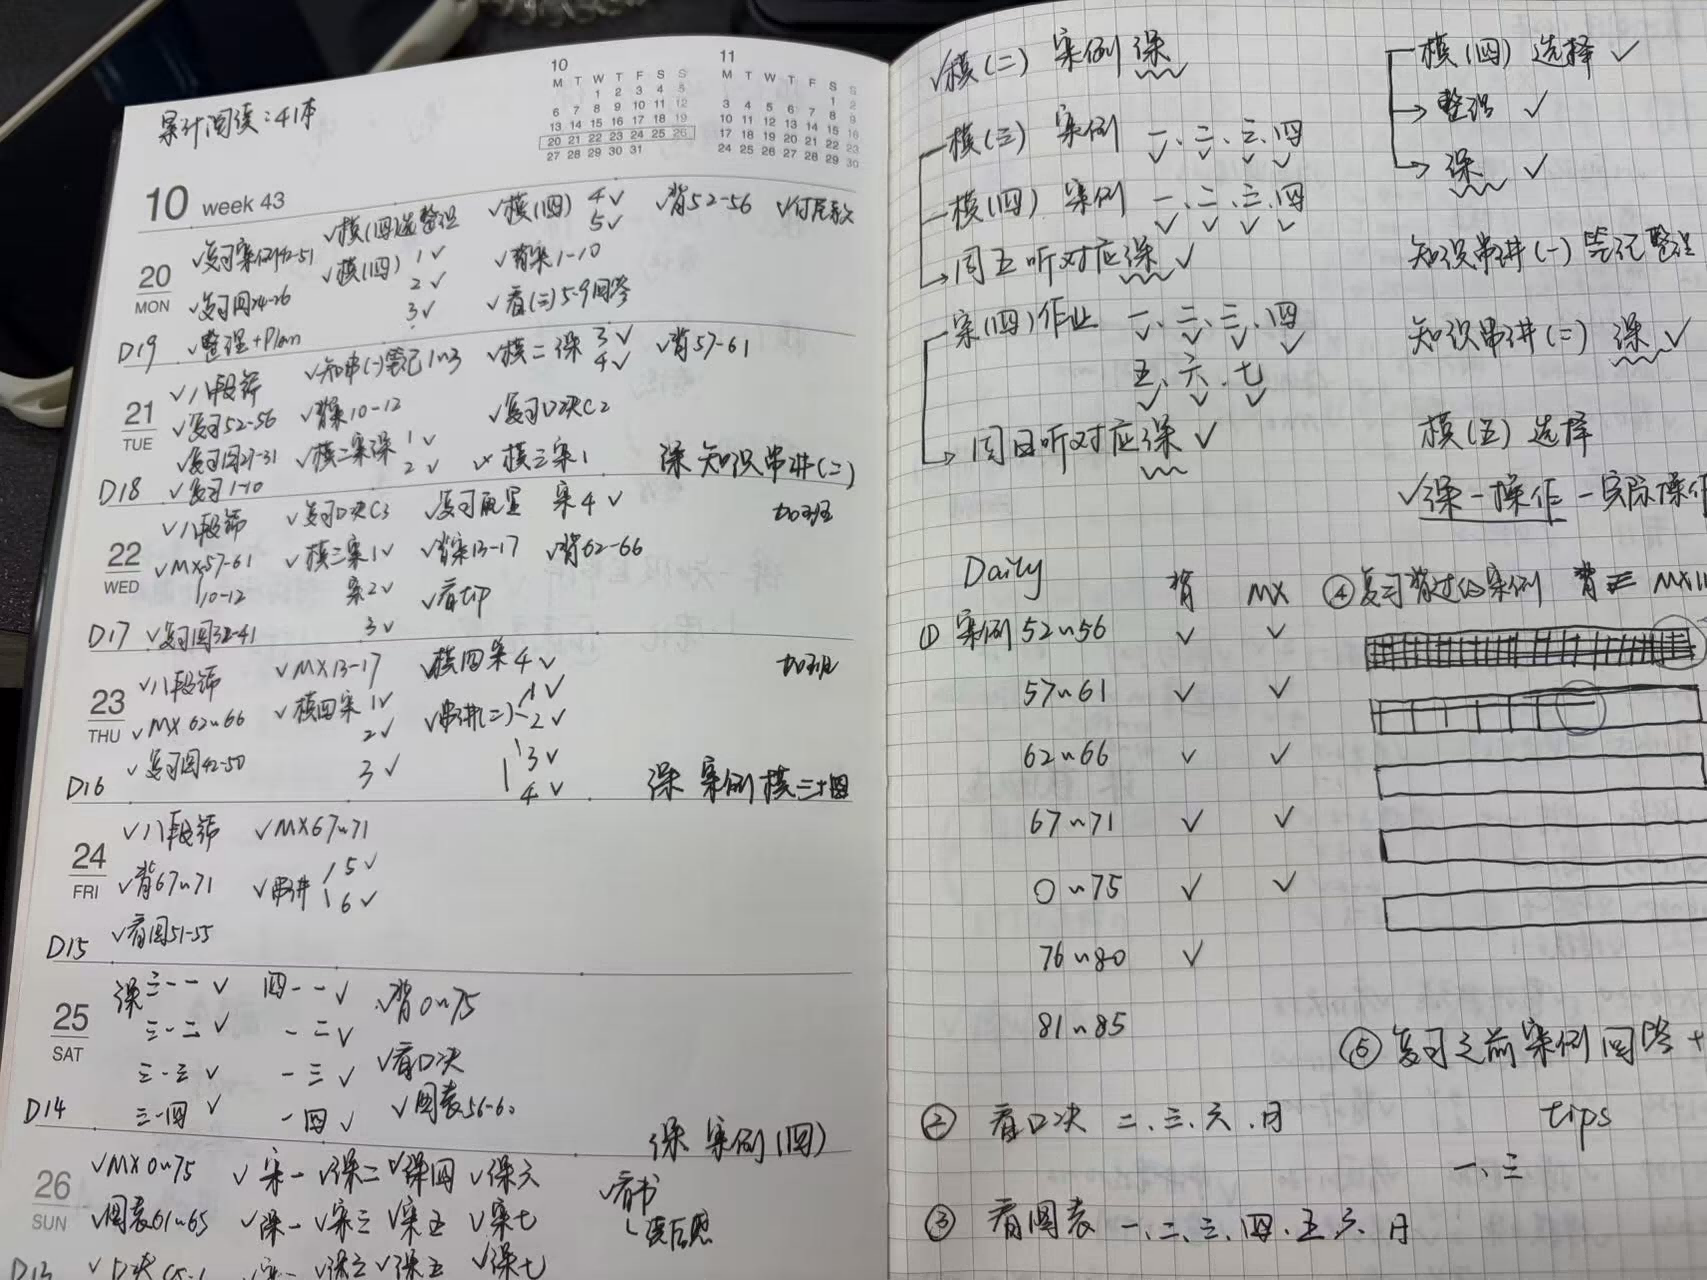 累计阅读：41本
10
M T W T F S S
1 2 3 4 5
6 7 8 9 10 11 12
13 14 15 16 17 18 19
20 21 22 23 24 25 26
27 28 29 30 31
11
M T W T F S S
1 2
3 4 5 6 7 8 9
10 11 12 13 14 15 16
17 18 19 20 21 22 23
24 25 26 27 28 29 30
10 week 43
20 MON
✓复习案例42-51 ✓模(四)选整理 ✓模(四) 4✓ ✓背52-56 ✓付尾款
✓模(四) 1✓ 5✓
2✓ ✓背案1-10
✓复习图24-26 3✓ ✓看(三)5-9回答
D19 ✓整理+Plan
21 TUE
✓八段锦 ✓知串(一)笔记1~3 ✓模二课 3✓ ✓背57-61
4✓
✓复习52-56 ✓背案10-12 ✓复习口决C2
✓复习图27-31 ✓模二案课 1✓ ✓模三案1 课 知识串讲(二)
2✓
D18 ✓复习1-10
22 WED
✓八段锦 ✓复习口决C3 ✓复习配置 案4✓ 加班
✓MX57-61 ✓模三案1✓ ✓背案13-17 ✓背62-66
10-12 案2✓ ✓看tip
D17 ✓复习图32-41 3✓
23 THU
✓八段锦 ✓MX13-17 ✓模四案4✓ 加班
✓MX62~66 ✓模四案1✓ ✓串讲(二) 1✓
2✓ 2✓
✓复习图42-50 3✓ 3✓
D16 4✓ 课 案例模三+四
24 FRI
✓八段锦 ✓MX67~71
✓背67~71 ✓串讲 5✓
6✓
D15 ✓看图51-55
25 SAT
课三-一✓ 四-一✓ ✓背0~75
三-二✓ -二✓
三-三✓ -三✓ ✓看口决
D14 三-四✓ -四✓ ✓图表56-60
课 案例(四)
26 SUN
✓MX0~75 ✓案一 ✓课二 ✓课四 ✓课六 ✓看书
✓图表61~65 ✓课一 ✓案三 ✓案五 ✓案七 读后感
D13 ✓口决 ✓课三 ✓课五 ✓课七
✓模(二) 案例 课
模(三) 案例 一、二、三、四
✓ ✓ ✓ ✓
模(四) 案例 一、二、三、四
✓ ✓ ✓ ✓
周五听对应课 ✓
案(四)作业 一、二、三、四
✓ ✓ ✓ ✓
五、六、七
✓ ✓ ✓
周日听对应课 ✓
模(四) 选择 ✓
整理 ✓
课 ✓
知识串讲(一) 笔记整理
知识串讲(二) 课 ✓
模(五) 选择
✓课-操作-实际操作
Daily 背 MX
① 案例 52~56 ✓ ✓
57~61 ✓ ✓
62~66 ✓ ✓
67~71 ✓ ✓
0~75 ✓ ✓
76~80 ✓
81~85
② 看口决 二、三、六、日
③ 看图表 一、二、三、四、五、六、日
④复习背过的案例 背 MX
⑤ 复习之前案例回答+
tips
一、三